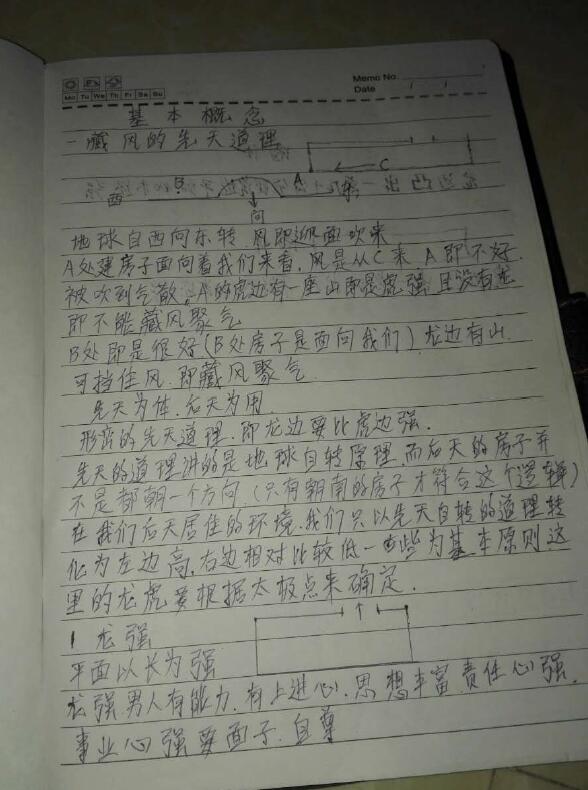 Memo No.
Date
Mo Tu We Th Fr Sa Su
基本概念
一藏风的先天道理
C
A
B
西
东
向
地球自西向东转 风即迎面吹来
A处建房子面向着我们来看,风是从C来 A即不好.
被吹到气散,A的虎边有一座山即是虎强 且没有龙
即不能藏风聚气
B处即是很好(B处房子是面向我们) 龙边有山
可挡住风.即藏风聚气
先天为体.后天为用.
形峦的先天道理.即龙边要比虎边强.
先天的道理讲的是地球自转原理.而后天的房子并
不是都朝一个方向(只有朝南的房子才符合这个逻辑)
在我们后天居住的环境.我们只以先天自转的道理转
化为左边高.右边相对比较低一些为基本原则 这
里的龙虎要根据太极点来确定.
1 龙强
平面以长为强
龙强.男人有能力.有上进心.思想丰富 责任心强.
事业心强 要面子.自尊